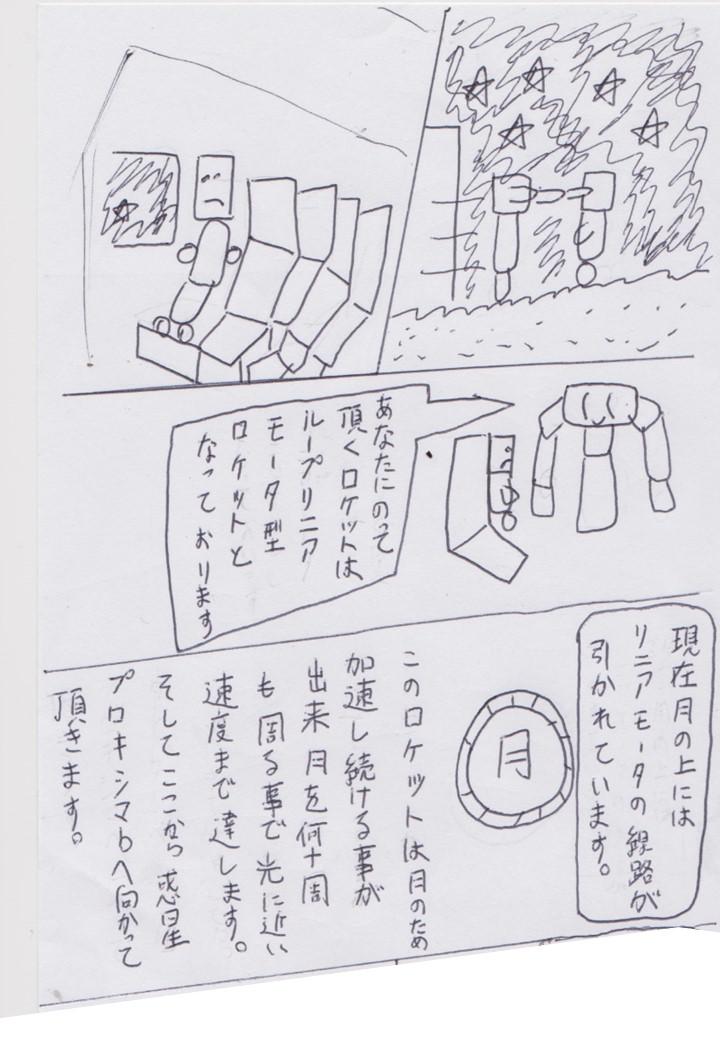 あなたにのって
頂くロケットは
ループリニア
モータ型
ロケットと
なっております
現在月の上には
リニアモータの線路が
引かれています。
月
このロケットは月のため
加速し続ける事が
出来月を何十周
も周る事で光に近い
速度まで達します。
そしてここから惑星
プロキシマbへ向かって
頂きます。